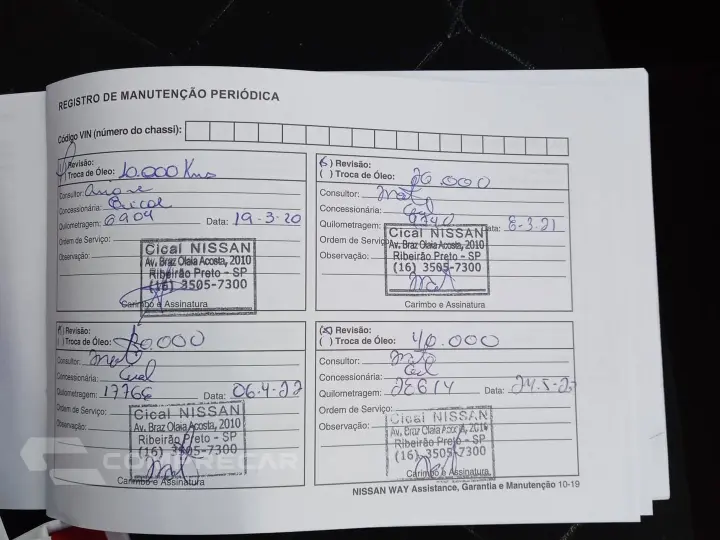 REGISTRO DE MANUTENÇÃO PERIÓDICA
Código VIN (número do chassi):
Revisão:
Troca de Óleo: 10.000 Kms
Consultor:
Concessionária: Cical
Quilometragem: 6904 Data: 19-3-20
Ordem de Serviço:
Observação:
Cical NISSAN
Av. Braz Olaia Acosta, 2010
Ribeirão Preto - SP
(16) 3505-7300
Carimbo e Assinatura
Revisão:
( ) Troca de Óleo: 20.000
Consultor:
Concessionária:
Quilometragem: Data: 8-3-21
Ordem de Serviço:
Observação:
Cical NISSAN
Av. Braz Olaia Acosta, 2010
Ribeirão Preto - SP
(16) 3505-7300
Carimbo e Assinatura
Revisão:
( ) Troca de Óleo: 30.000
Consultor:
Concessionária:
Quilometragem: 17768 Data: 06-4-22
Ordem de Serviço:
Observação:
Cical NISSAN
Av. Braz Olaia Acosta, 2010
Ribeirão Preto - SP
(16) 3505-7300
Carimbo e Assinatura
Revisão:
( ) Troca de Óleo: 40.000
Consultor:
Concessionária:
Quilometragem: 28614 Data: 24-5-23
Ordem de Serviço:
Observação:
Cical NISSAN
Av. Braz Olaia Acosta, 2010
Ribeirão Preto - SP
(16) 3505-7300
Carimbo e Assinatura
NISSAN WAY Assistance, Garantia e Manutenção 10-19
COMPRECAR